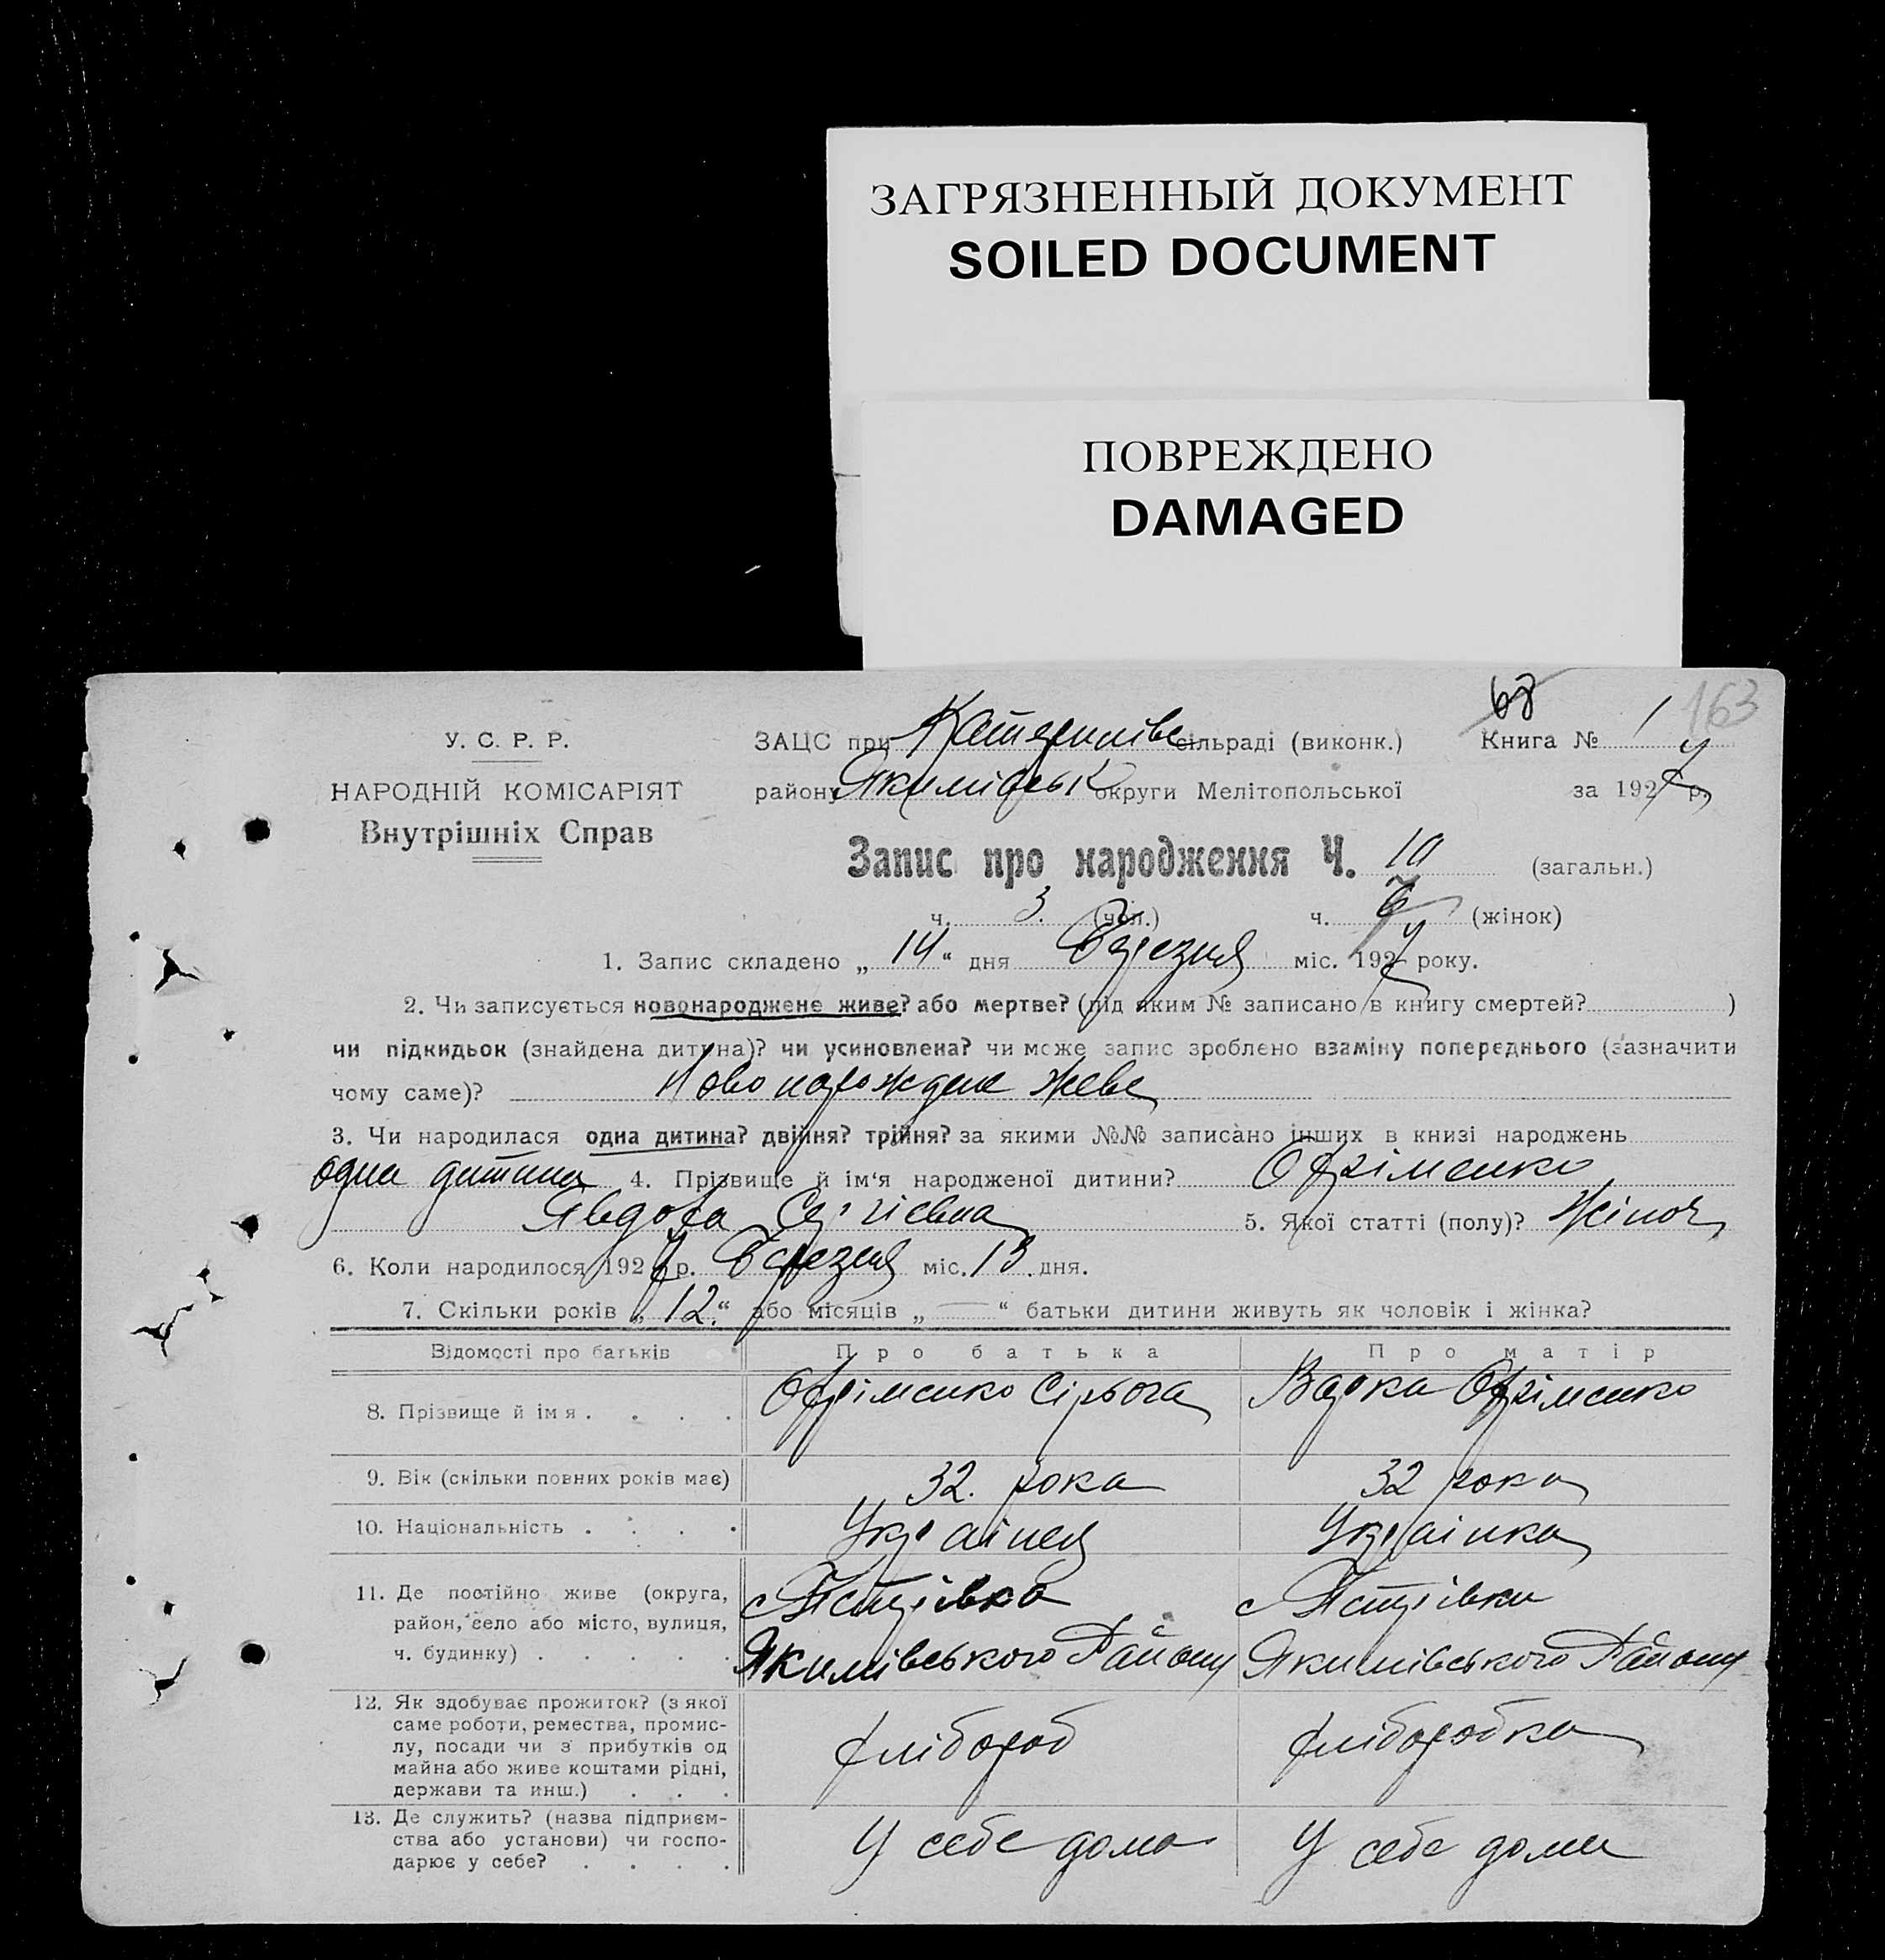 ЗАГРЯЗНЕННЫЙ ДОКУМЕНТ
SOILED DOCUMENT
ПОВРЕЖДЕНО
DAMAGED
163
У. С. Р. Р.
НАРОДНІЙ КОМІСАРІЯТ
Внутрішніх Справ
ЗАЦС при Катеринівс сільраді (виконк.) Книга № 1
району Якимівськ округи Мелітопольської за 192 р.
Запис про народження Ч. 10 (загальн.)
ч. 3. (чол.) ч. (жінок)
1. Запис складено „ 14 “ дня Березня міс. 192 року.
2. Чи записується новонароджене живе? або мертве? (під яким № записано в книгу смертей? )
чи підкидьок (знайдена дитина)? чи усиновлена? чи може запис зроблено взаміну попереднього (зазначити
чому саме)? Новонарождене живе
3. Чи народилася одна дитина? двійня? трійня? за якими №№ записано інших в книзі народжень
одна дитина 4. Прізвище й ім‘я народженої дитини? Охріменко
Явдоха Сергіевна 5. Якої статті (полу)? Жіноч
6. Коли народилося 192 р. Березня міс. 13 дня.
7. Скільки років „ 12. “ або місяців „ — “ батьки дитини живуть як чоловік і жінка?
Відомості про батьків Про батька Про матір
8. Прізвище й ім я . . . . Охріменко Сірьога Варка Охріменко
9. Вік (скільки повних років має) 32. рока 32 рока
10. Національність . . . . Украінец Украінка
11. Де постійно живе (округа,
район, село або місто, вулиця,
ч. будинку) . . . . .
с Петрівка с Петрівка
Якимівського Району Якимівського Району
12. Як здобуває прожиток? (з якої
саме роботи, ремества, промис-
лу, посади чи з прибутків од
майна або живе коштами рідні,
держави та инш.) . . .
хлібороб хліборобка
13. Де служить? (назва підприєм-
ства або установи) чи госпо-
дарює у себе? . . . .
У себе дома У себе дома